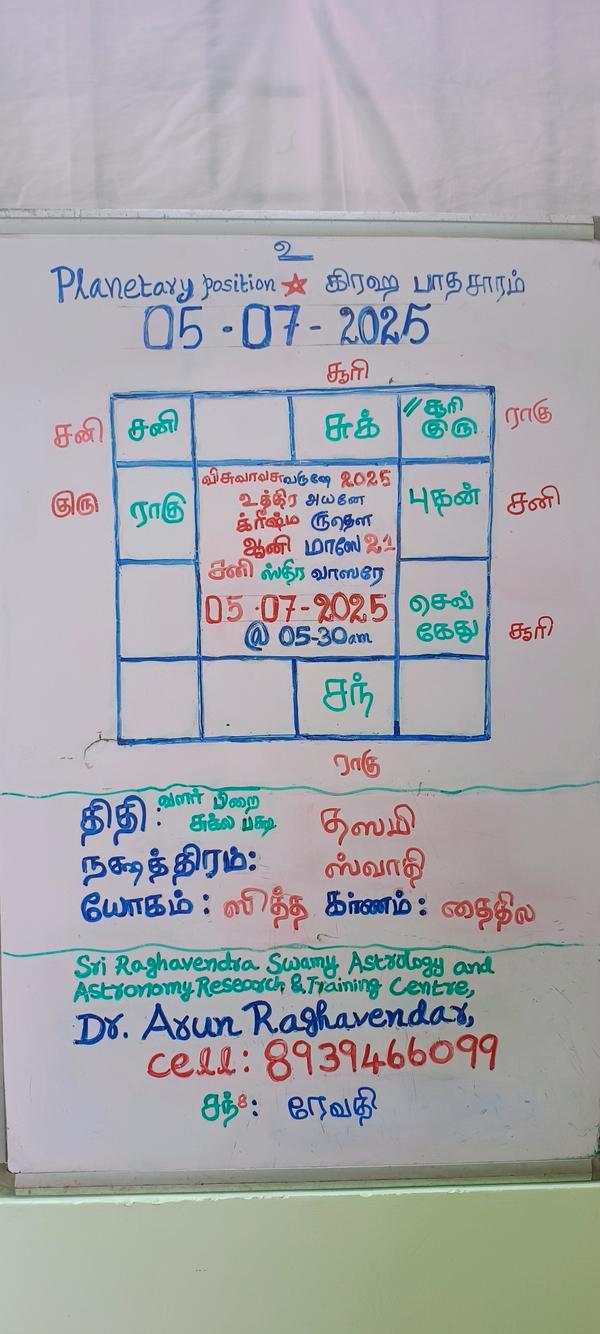 உ
Planetary position கிரஹ பாதசாரம்
05-07-2025
சூரி
சனி சனி சுக் // சூரி ராகு
குரு
குரு ராகு புதன் சனி
விசுவாவசுவருஷே 2025
உத்திர அயனே
க்ரீஷ்ம ருதௌ
ஆனி மாஸே 21
சனி ஸ்திர வாஸரே
05-07-2025
@ 05-30am
செவ்
கேது சூரி
சந்
ராகு
திதி: வளர் பிறை
சுக்ல பக்ஷ தஸமி
நக்ஷத்திரம்: ஸ்வாதி
யோகம்: ஸித்த கர்ணம்: தைதில
Sri Raghavendra Swamy Astrology and
Astronomy Research & Training Centre,
Dr. Arun Raghavendar,
cell: 8939466099
சந்8: ரேவதி